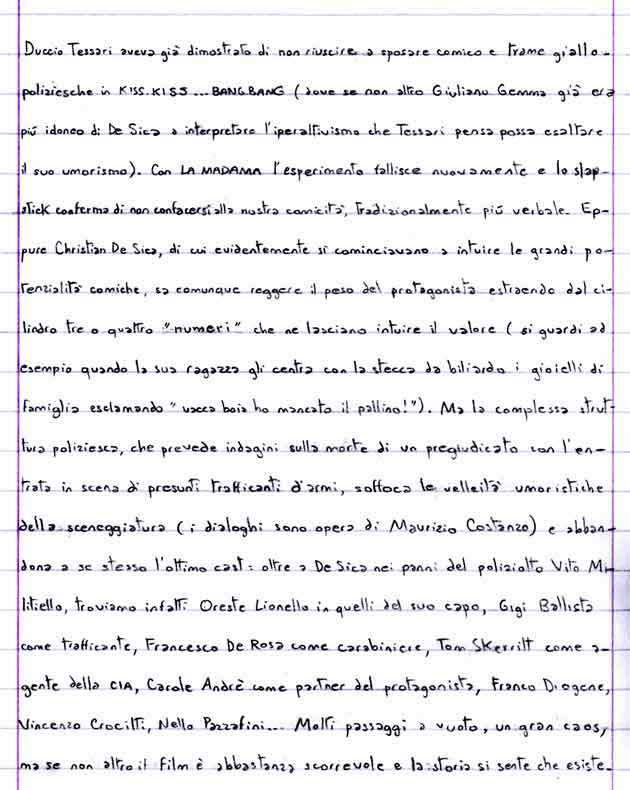 Duccio Tessari aveva già dimostrato di non riuscire a sposare comico e trame giallo-
poliziesche in KISS.KISS...BANG.BANG (dove se non altro Giuliano Gemma già era
più idoneo di De Sica a interpretare l'iperattivismo che Tessari pensa possa esaltare
il suo umorismo). Con LA MADAMA l'esperimento fallisce nuovamente e lo slap-
stick conferma di non confacersi alla nostra comicità, tradizionalmente più verbale. Ep-
pure Christian De Sica, di cui evidentemente si cominciavano a intuire le grandi po-
tenzialità comiche, sa comunque reggere il peso del protagonista estraendo dal ci-
lindro tre o quattro "numeri" che ne lasciano intuire il valore (si guardi ad
esempio quando la sua ragazza gli centra con la stecca da biliardo i gioielli di
famiglia esclamando "vacca boia ho mancato il pallino!"). Ma la complessa strut-
tura poliziesca, che prevede indagini sulla morte di un pregiudicato con l'en-
trata in scena di presunti trafficanti d'armi, soffoca le velleità umoristiche
della sceneggiatura (i dialoghi sono opera di Maurizio Costanzo) e abban-
dona a se stesso l'ottimo cast: oltre a De Sica nei panni del poliziotto Vito Mi-
litiello, troviamo infatti Oreste Lionello in quelli del suo capo, Gigi Ballista
come trafficante, Francesco De Rosa come carabiniere, Tom Skerritt come a-
gente della CIA, Carole André come partner del protagonista, Franco Diogene,
Vincenzo Crocitti, Nello Pazzafini... Molti passaggi a vuoto, un gran caos,
ma se non altro il film è abbastanza scorrevole e la storia si sente che esiste.